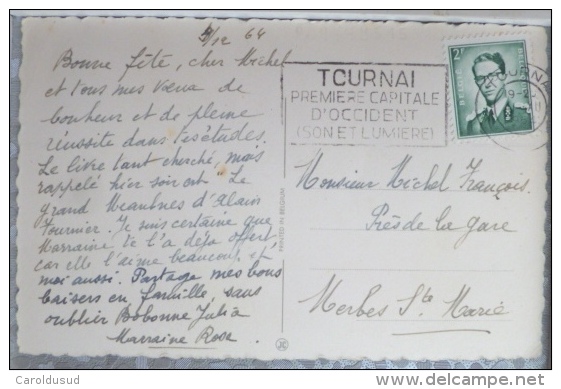 5/12 64
Bonne fête, cher Michel
et tous mes vœux de
bonheur et de pleine
réussite dans tes études.
Le livre tant cherché, mais
rappelé hier soir est "Le
grand Meaulnes d'Alain
Fournier. Je suis certaine que
Marraine te l'a déjà offert,
car elle l'aime beaucoup, et
moi aussi. Partage mes bons
baisers en famille, sans
oublier Bobonne Julia
Marraine Rose
PRINTED IN BELGIUM
TOURNAI
PREMIERE CAPITALE
D'OCCIDENT
(SON ET LUMIERE)
2F
BELGIE
TOURNAI
Monsieur Michel François
Près de la gare
Merbes Ste Marie
Caroldusud
http://www.delcampe.net